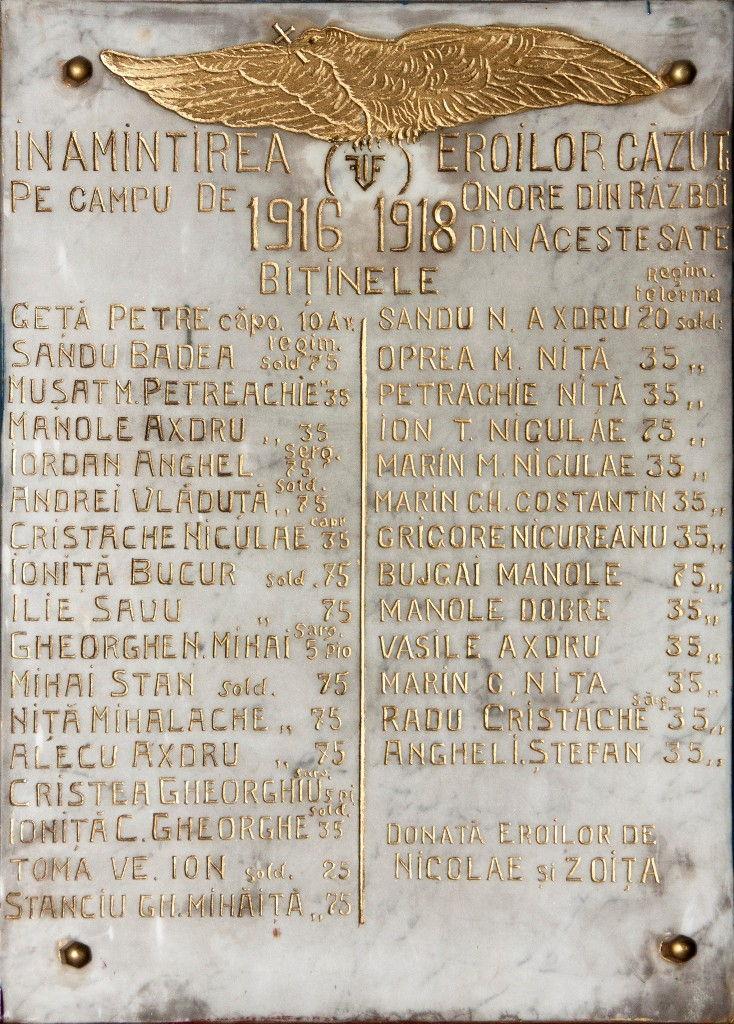 ÎN AMINTIREA EROILOR CĂZUȚ
PE CAMPU DE ONORE DIN RĂZBOI
1916 1918 DIN ACESTE SATE
BIȚINELE
GEȚĂ PETRE căpo. 10 Ar.
SANDU BADEA regim. sold 75
MUȘAT M. PETREACHIE " 35
MANOLE AXDRU „ 35
IORDAN ANGHEL serg. 75
ANDREI VLĂDUȚĂ sold. „ 75
CRISTACHE NICULAE capr 35
IONIȚĂ BUCUR sold. 75
ILIE SAVU „ 75
GHEORGHE N. MIHAI sarg. 5 pio
MIHAI STAN sold. 75
NIȚĂ MIHALACHE „ 75
ALECU AXDRU „ 75
CRISTEA GHEORGHIU serg. 5 pi
IONIȚĂ C. GHEORGHE sold. 35
TOMA VE. ION sold. 25
STANCIU GH. MIHĂIȚĂ „ 75
regim.
SANDU N. AXDRU 20 sold:
OPREA M. NIȚĂ 35 „
PETRACHE NIȚĂ 35 „
ION T. NICULAE 75 „
MARIN M. NICULAE 35 „
MARIN GH. COSTANTIN 35 „
GRIGORE NICUREANU 35 „
BUJGAI MANOLE 75 „
MANOLE DOBRE 35 „
VASILE AXDRU 35 „
MARIN C. NIȚA 35 „
RADU CRISTACHE sărg 35 „
ANGHEL I. ȘTEFAN 35 „
DONATĂ EROILOR DE
NICOLAE și ZOIȚA